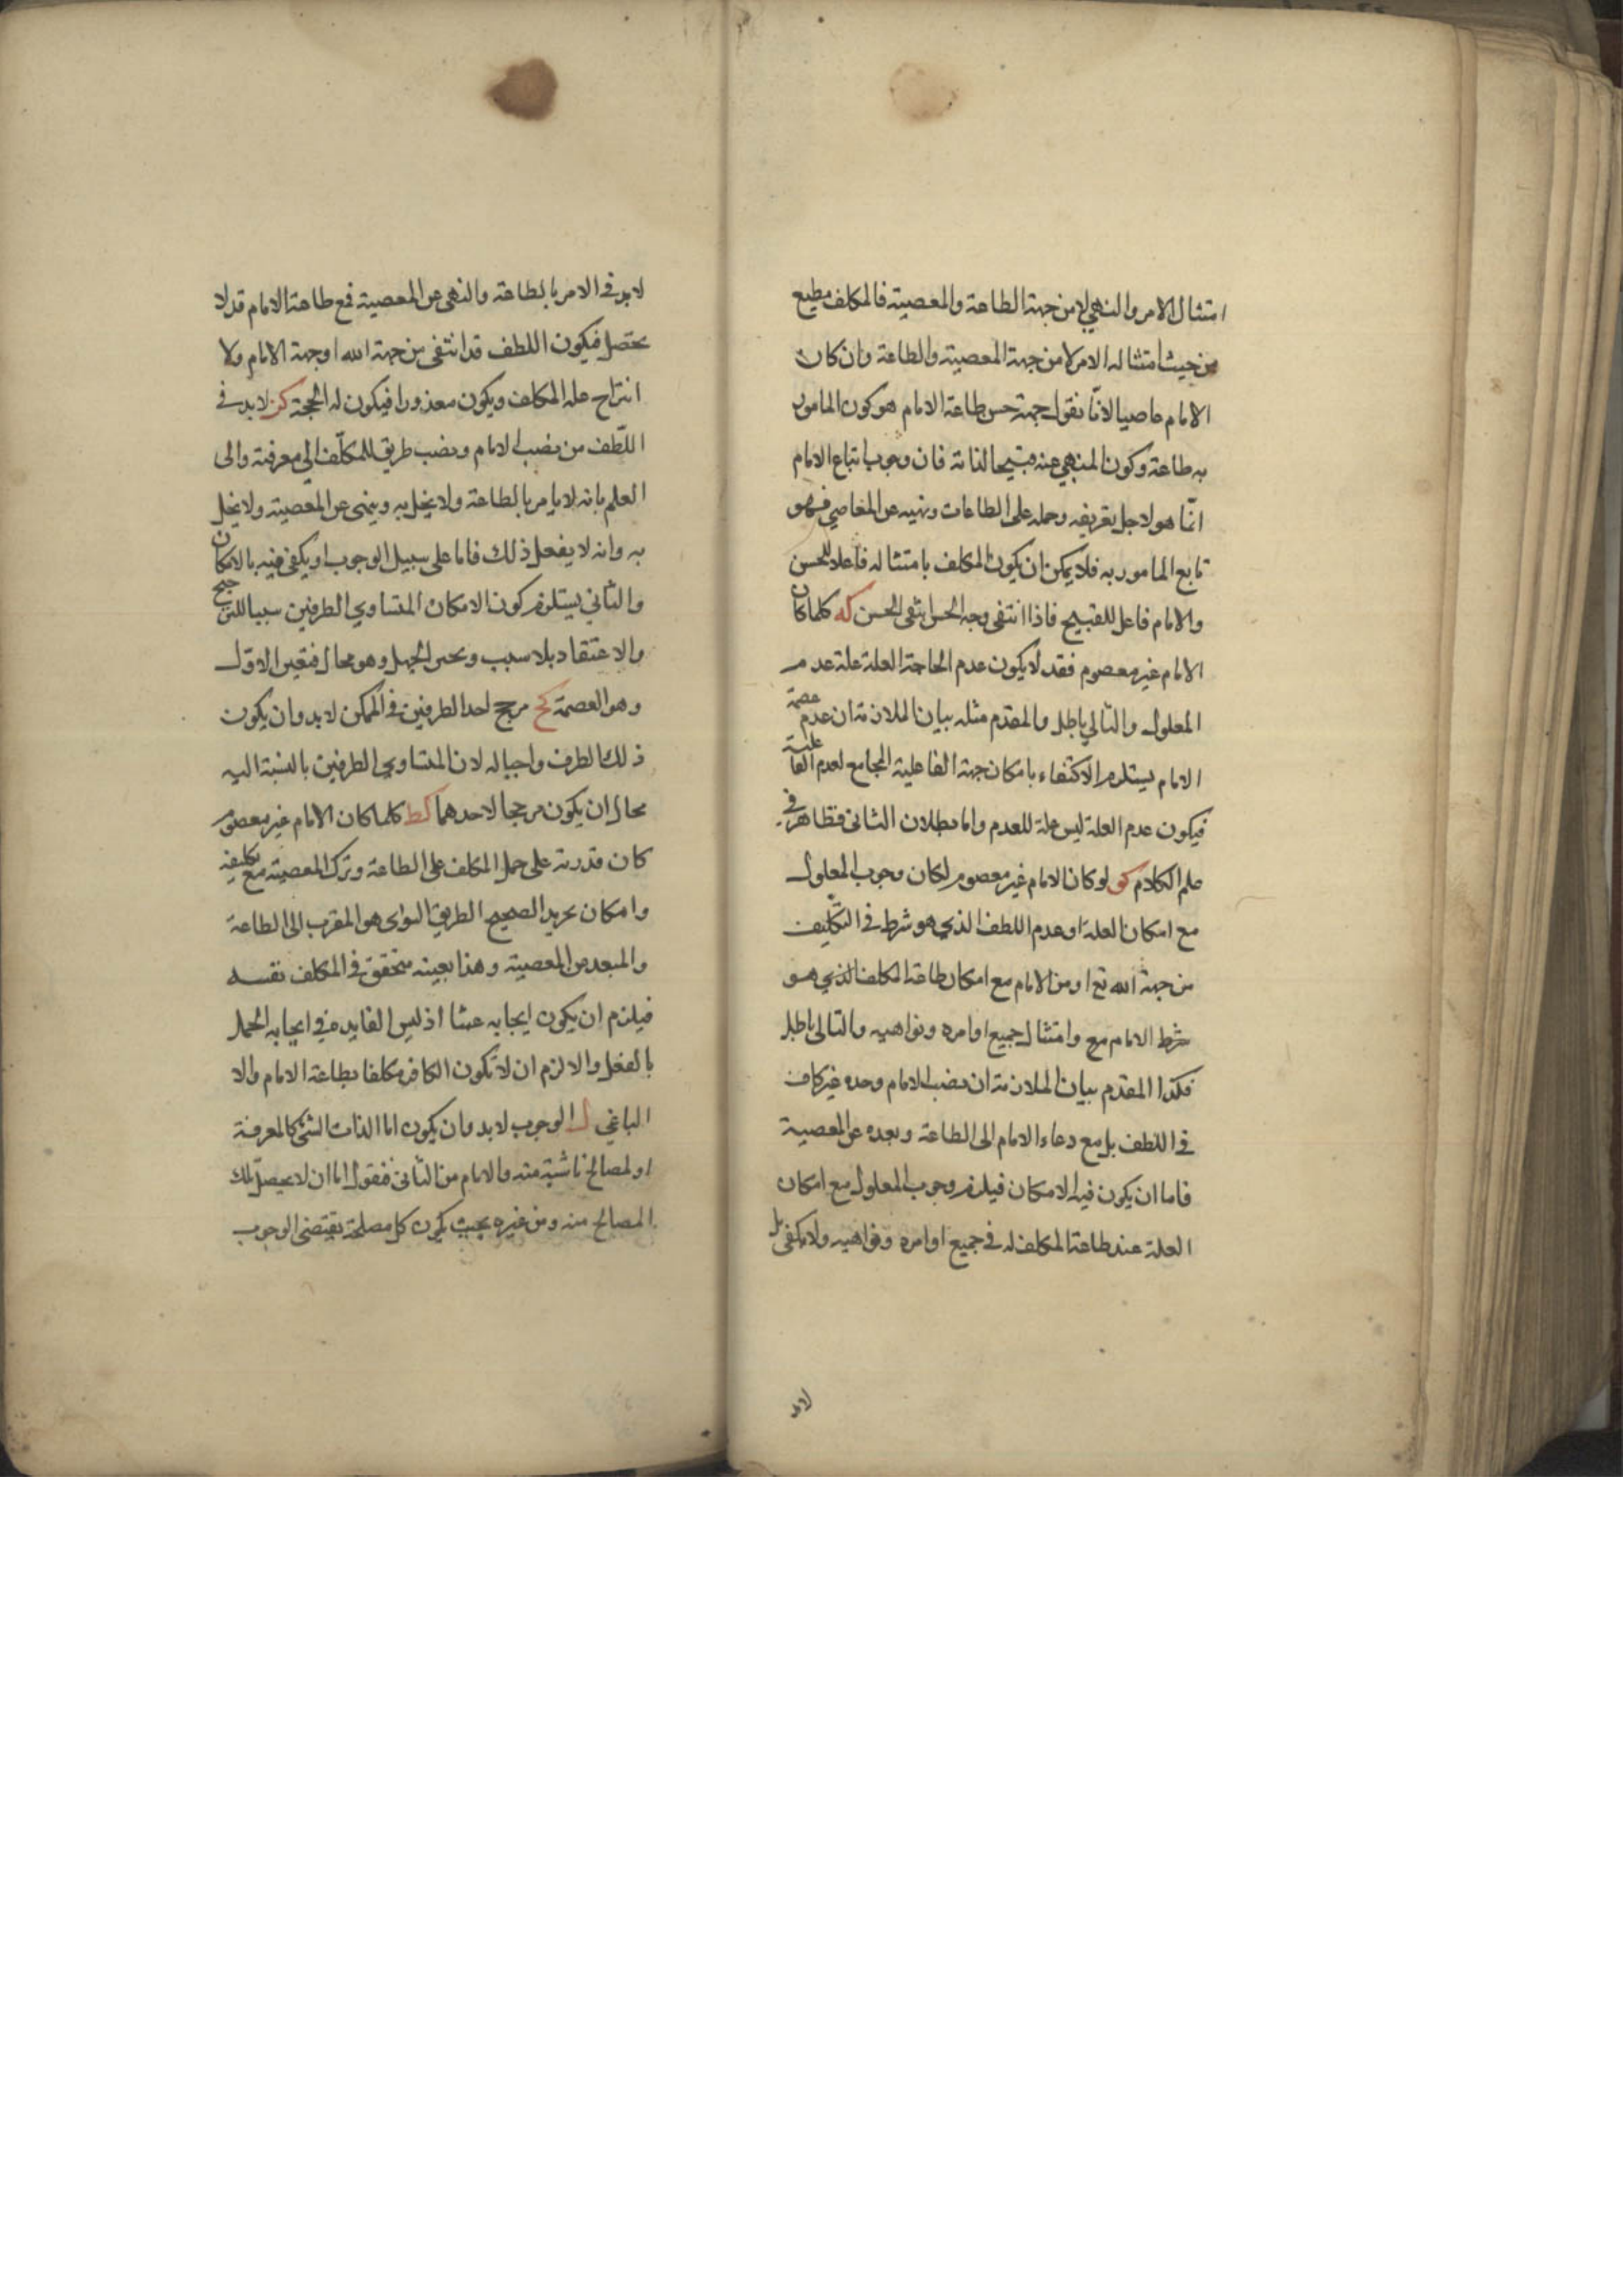 امتثال الامر والنهي لا من جهة الطاعة والمعصية فالمكلف مطيع
من حيث امتثاله الامر لا من جهة المعصية والطاعة وان كان
الامام عاصيا لانّا نقول جهة حسن طاعة الامام هو كون المامور
به طاعة وكون المنهي عنه قبيحا لذاته فان وجوب اتباع الامام
انّما هو لاجل تعريفه وحمله على الطاعات ونهيه عن المعاصي فهو
تابع المامور به فلا يمكن ان يكون المكلف بامتثاله فاعلا للحسن
والامام فاعل للقبيح فاذا انتفى وجه الحسن انتفى الحسن كه كلما كان
الامام غير معصوم فقد لا يكون عدم الحاجة العلة علة عدم
المعلول والتالي باطل والمقدم مثله بيان الملازمة ان عدم عصمة
الامام يستلزم الاكتفاء بامكان جهة الفاعلية المجامع لعدم الفاعلية
فيكون عدم العلة ليس علة للعدم واما بطلان الثاني فظاهر في
علم الكلام كو لو كان الامام غير معصوم لكان وجوب المعلول
مع امكان العلة او عدم اللطف الذي هو شرط في التكليف
من جهة الله تع او من الامام مع امكان طاعة المكلف الذي هو
شرط الامام مع وامتثال جميع اوامره ونواهيه والتالى باطل
فكذا المقدم بيان الملازمة ان نصب الامام وحده غير كاف
في اللطف بل مع دعاء الامام الى الطاعة وبعده عن المعصية
فاما ان يكون فيه الامكان فيلزم وجوب المعلول مع امكان
العلة عند طاعة المكلف له في جميع اوامره ونواهيه ولا يكفي بل
لابد
لابد في الامر بالطاعة والنهى عن المعصية فمع طاعة الامام قد لا
يحصل فيكون اللطف قد انتفى من جهة الله او جهة الامام ولا
انتزاح علة المكلف ويكون معذورا فيكون له الحجة كز لا بد في
اللّطف من نصب الامام ونصب طريق للمكلّف الي معرفته والى
العلم بانه لا يامر بالطاعة ولا يخل به وينهى عن المعصية ولا يخل
به وانه لا يفعل ذلك فاما على سبيل الوجوب او يكفى فيه بالامكان
والثاني يستلزم كون الامكان المتساوي الطرفين سببا للترجيح
والاعتقاد بلا سبب وبحسن الجهل وهو محال فتعين الاوّل
وهو العصمة كح مرجح احد الطرفين في الممكن لا بد وان يكون
ذلك الطرف واجبا له لان المتساوي الطرفين بالنسبة اليه
محال ان يكون مرجحا لاحدهما كط كلما كان الامام غير معصوم
كان قدرته على حمل المكلف على الطاعة وترك المعصية مع تكليفه
وامكان يريد الصحيح الطريق السوى هو المقرب الى الطاعة
والمبعد من المعصية وهذا بعينه متحقق في المكلف نفسه
فيلزم ان يكون ايجابه عبثا اذ ليس الفايده في ايجابه الحمل
بالفعل والا لزم ان لا تكون الكافر مكلفا بطاعة الامام والا
الباغي ل الوجوب لا بد وان يكون اما الذات الشئ كالمعرفة
او لمصالح ناشية منه والامام من الثاني فنقول اما ان لا يحصل تلك
المصالح منه ومن غيره بحيث يكون كل مصلحة يقتضى الوجوب